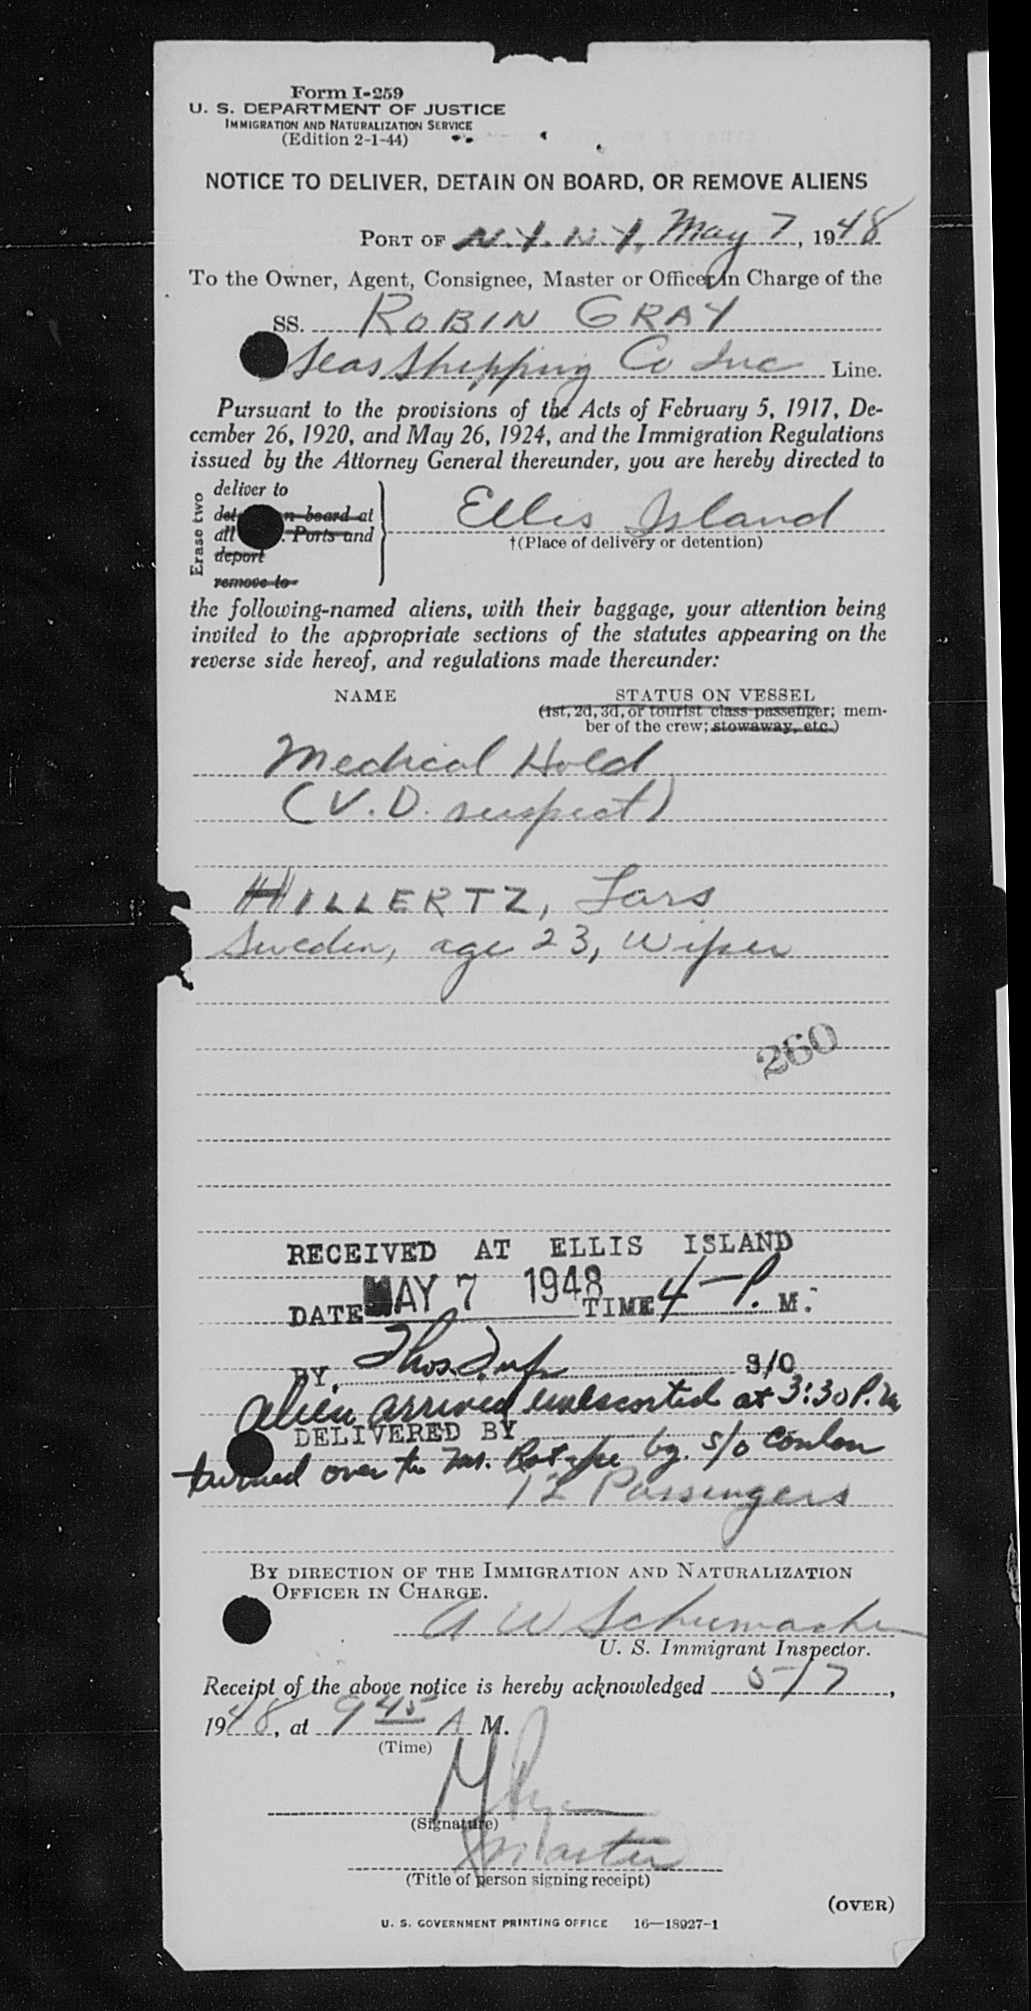 Form I-259
U. S. DEPARTMENT OF JUSTICE
IMMIGRATION AND NATURALIZATION SERVICE
(Edition 2-1-44)
NOTICE TO DELIVER, DETAIN ON BOARD, OR REMOVE ALIENS
PORT OF N.Y. N.Y. May 7, 1948
To the Owner, Agent, Consignee, Master or Officer in Charge of the
SS. ROBIN GRAY
Seas Shipping Co Inc Line.
Pursuant to the provisions of the Acts of February 5, 1917, De-
cember 26, 1920, and May 26, 1924, and the Immigration Regulations
issued by the Attorney General thereunder, you are hereby directed to
Erase two
deliver to
det n board at
all . Ports and
deport
remove to
Ellis Island
†(Place of delivery or detention)
the following-named aliens, with their baggage, your attention being
invited to the appropriate sections of the statutes appearing on the
reverse side hereof, and regulations made thereunder:
NAME STATUS ON VESSEL
(1st, 2d, 3d, or tourist class passenger; mem-
ber of the crew; stowaway, etc.)
Medical Hold
(V.D. suspect)
HILLERTZ, Lars
Sweden, age 23, Wiper
260
RECEIVED AT ELLIS ISLAND
DATE MAY 7 1948 TIME 4 - P. M.
BY. Thos. S/O
alien arrived unescorted at 3:30 P.M
DELIVERED BY
turned over to by S/O Conlon
12 Passengers
BY DIRECTION OF THE IMMIGRATION AND NATURALIZATION
OFFICER IN CHARGE.
A W Schumacher
U. S. Immigrant Inspector.
Receipt of the above notice is hereby acknowledged 5/7,
1948, at 9 45 A M.
(Time)
(Signature)
Master
(Title of person signing receipt)
(OVER)
U. S. GOVERNMENT PRINTING OFFICE 16—18927-1